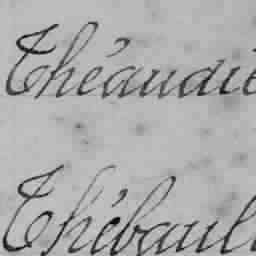 Théaudie
Thébaul